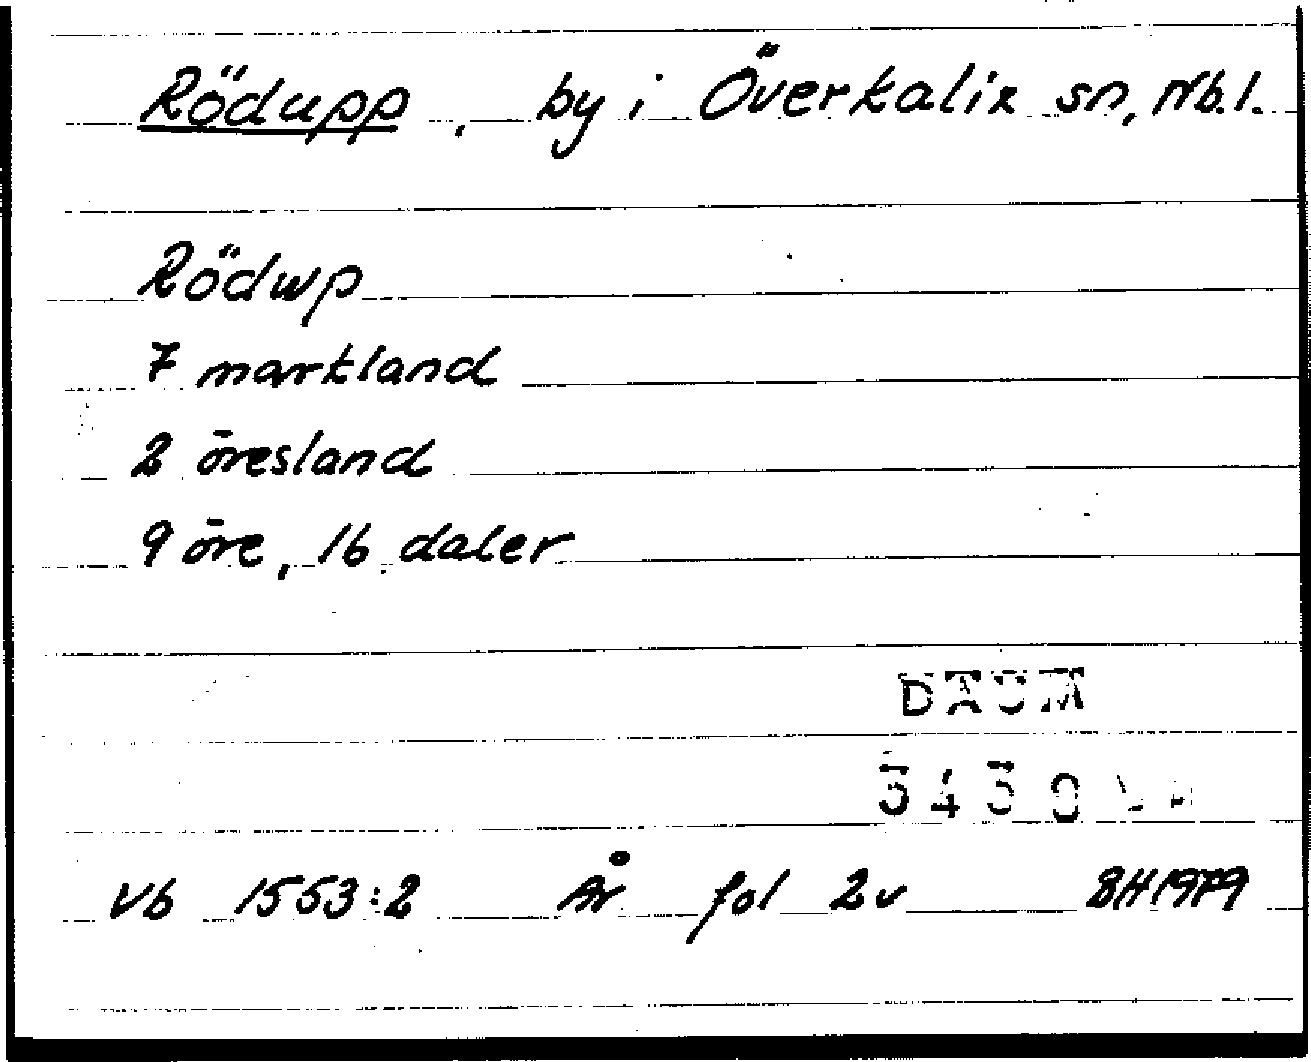 Rödupp, by i Överkalix sn, Nb. l.
Rödwp
7 markland
2 öresland
9 öre, 16 daler
DAUM
3430
Vb 1553:2 År fol 2v BH 1979